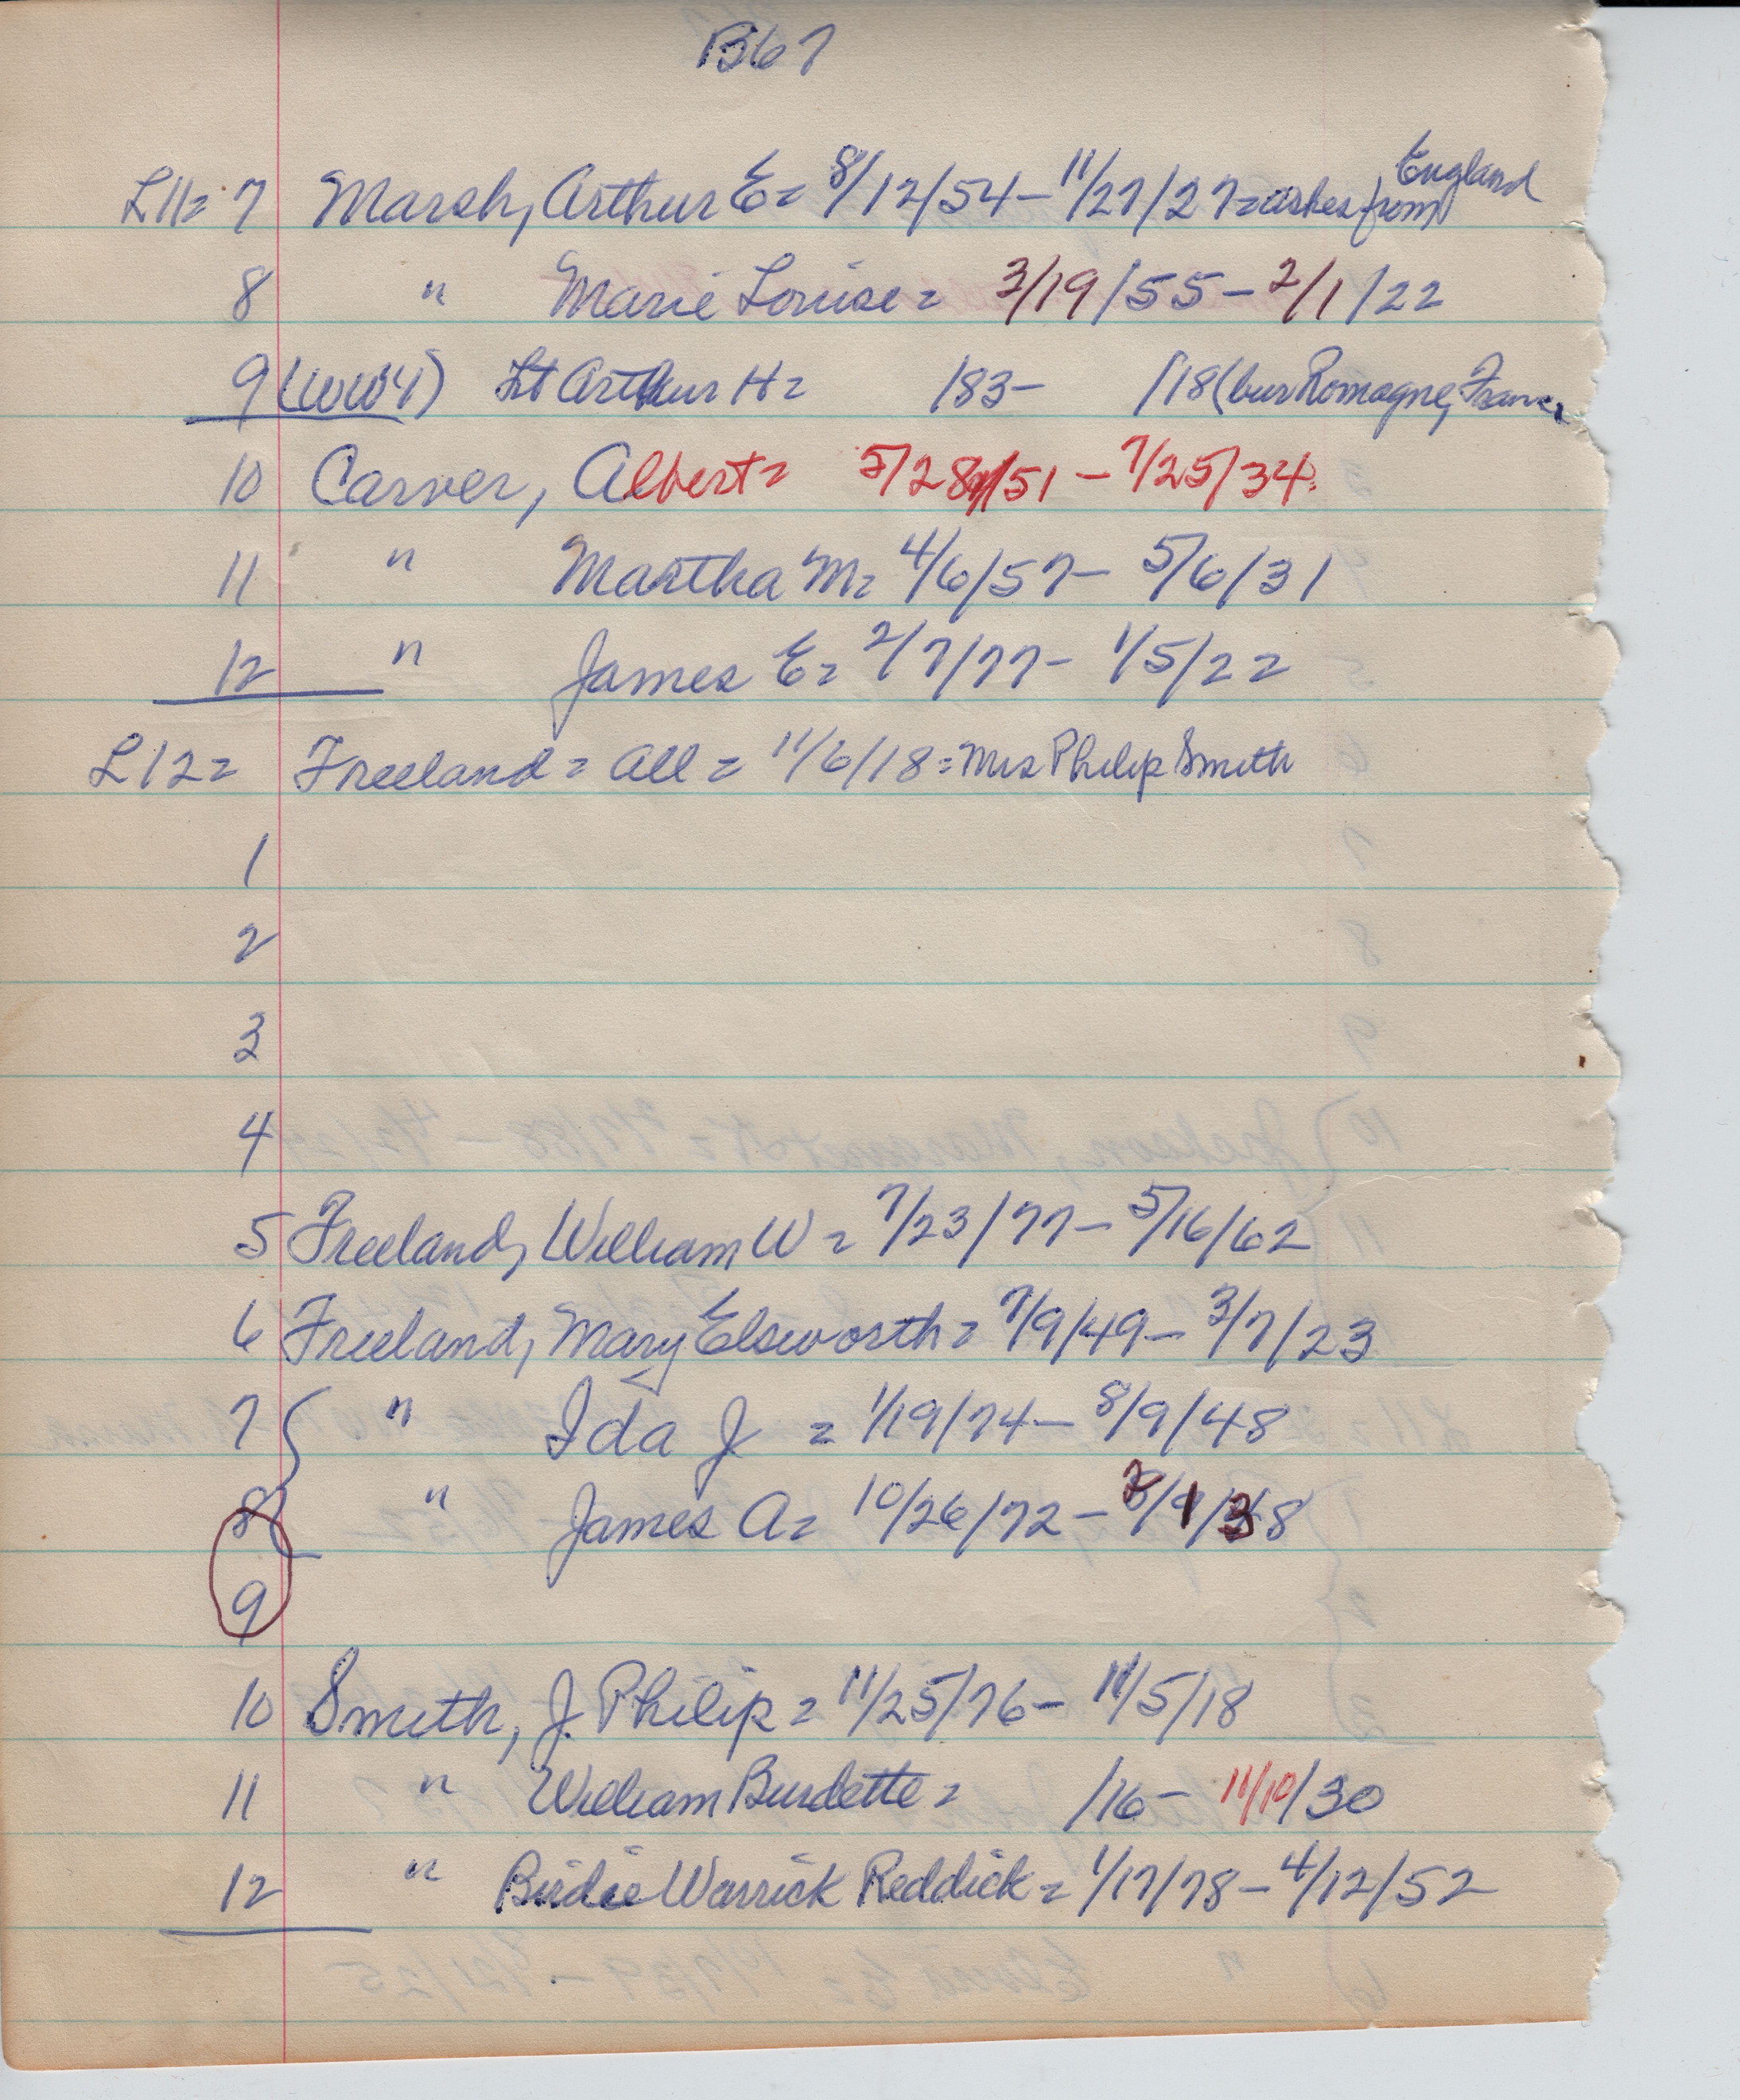 B67
L11= 7 Marsh, Arthur E= 8/12/54 - 11/27/27= ashes from England
8 " Marie Louise= 3/19/55 - 2/1/22
9 (WW1) Lt Arthur H= /83- /18 (bur Romagne, France
10 Carver, Albert= 5/28/51 - 7/25/34
11 " Martha M= 4/6/57- 5/6/31
12 " James E= 2/7/77- 1/5/22
L12= Freeland = all = 11/6/18 = Mrs Philip Smith
1
2
3
4
5 Freeland, William W = 7/23/77- 5/16/62
6 Freeland, Mary Elsworth= 7/9/49- 3/7/23
7 " Ida J = 1/19/74- 8/9/48
8 " James A= 10/26/72- /1/38
9
10 Smith, J. Philip = 11/25/76- 11/5/18
11 " William Burdette= /16- 11/10/30
12 " Birdie Warrick Reddick = 1/17/78- 4/12/52